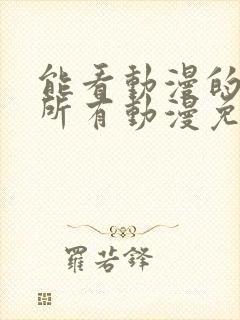 能看動漫的
所有動漫免
羅若鋒